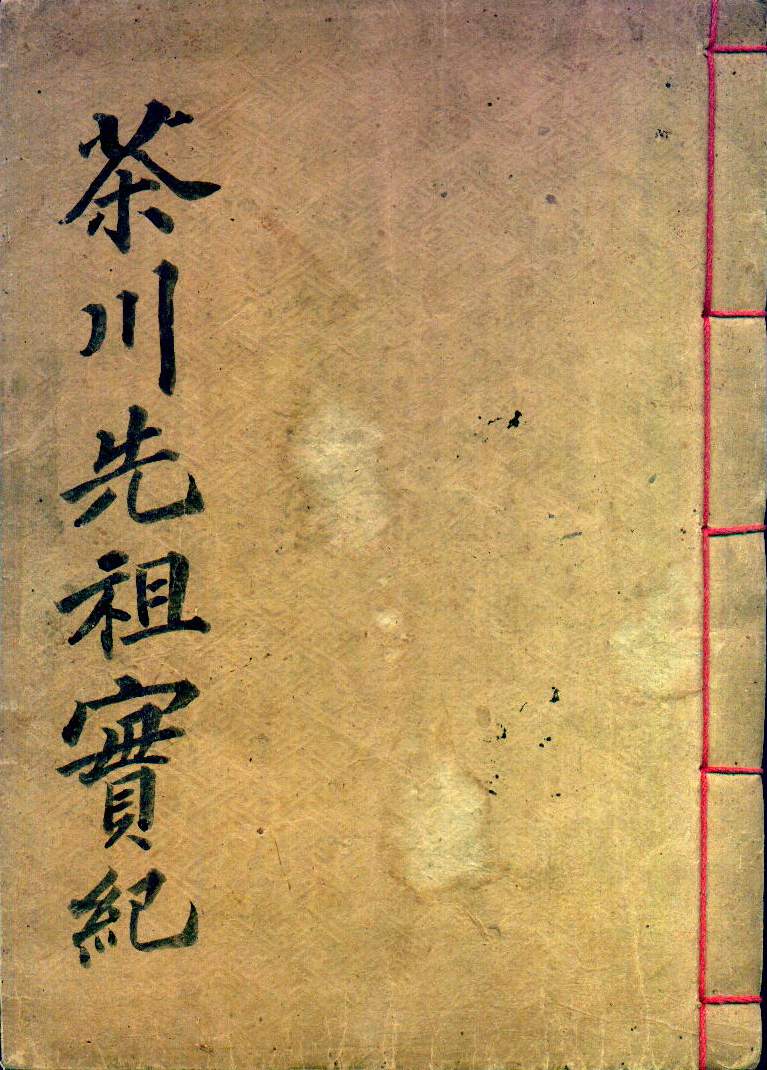 茶川先祖實紀